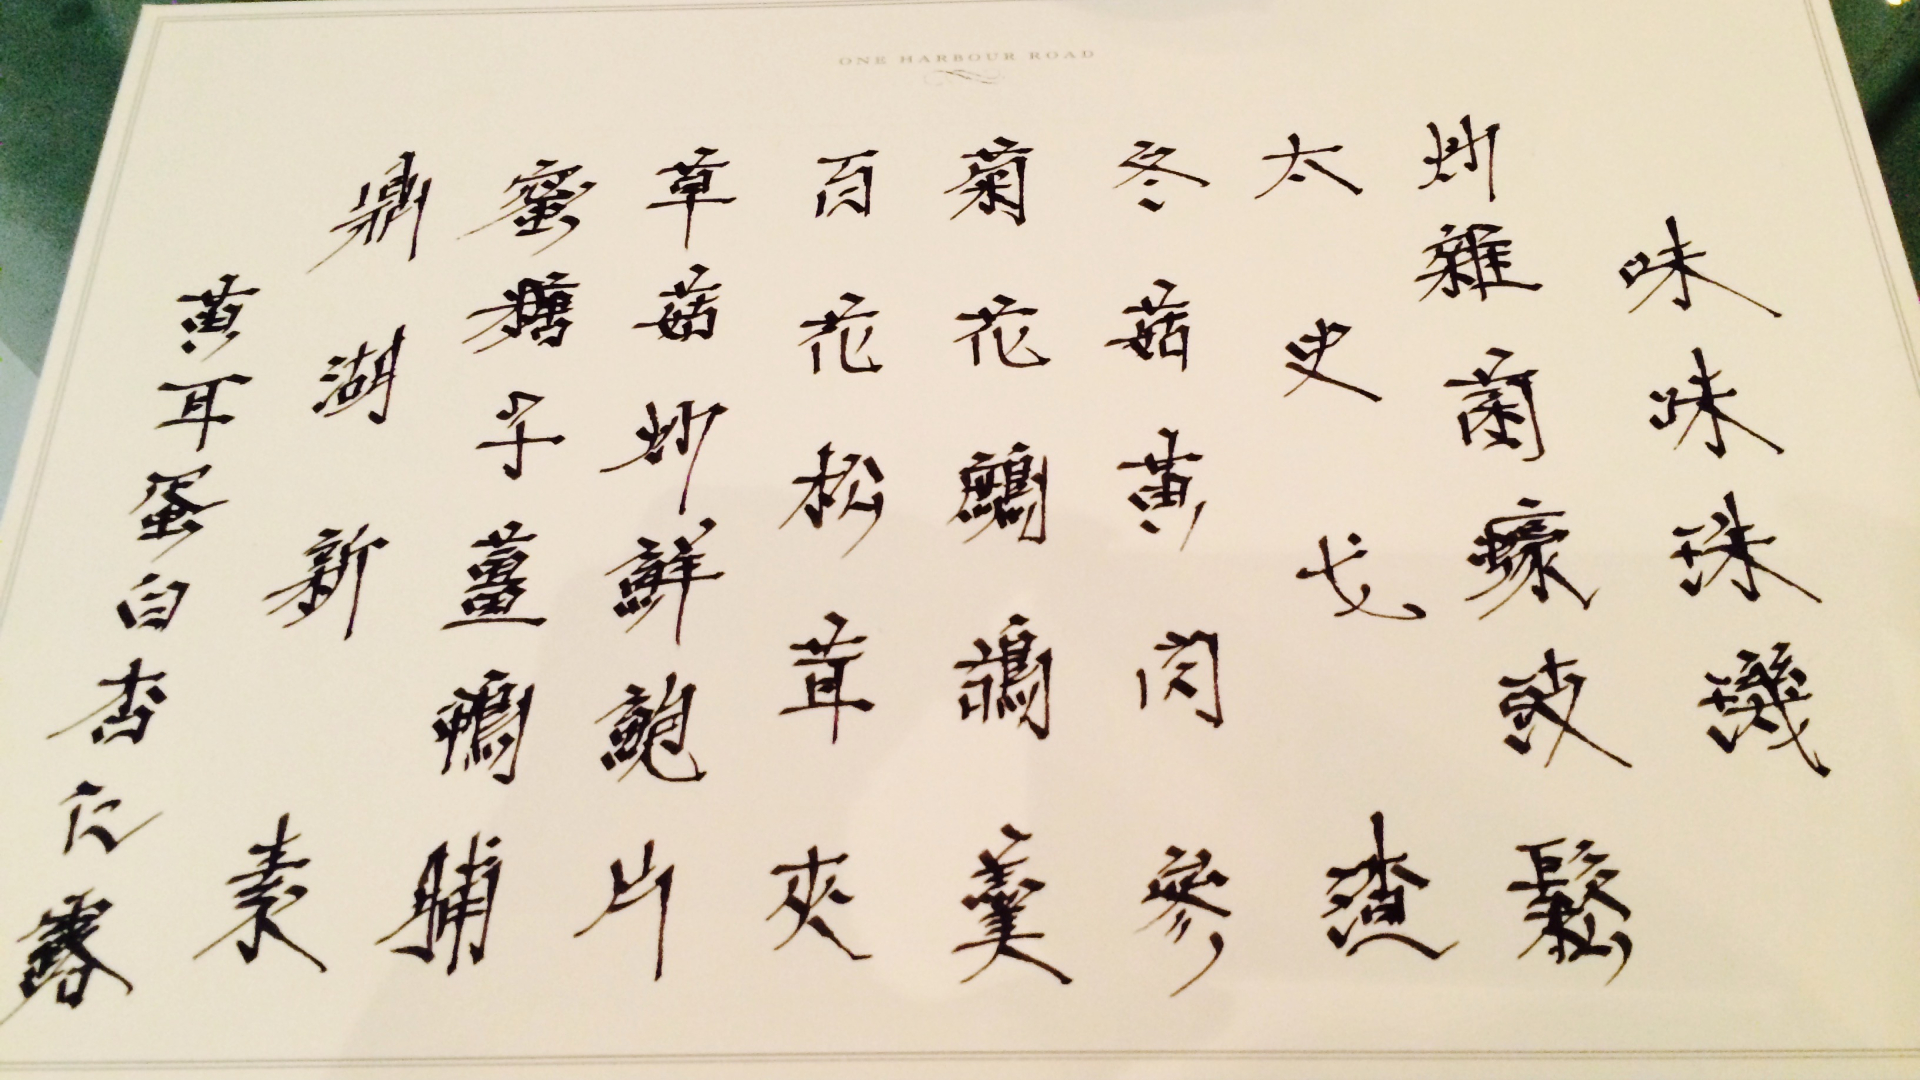 ONE HARBOUR ROAD
味味珠璣
炒雜菌蠔豉鬆
太史戈渣
冬菇黃肉參
菊花鷓鴣羹
百花松茸夾
草菇炒鮮鮑片
蜜糖子薑鴨脯
鼎湖新素
黃耳蛋白杏仁露